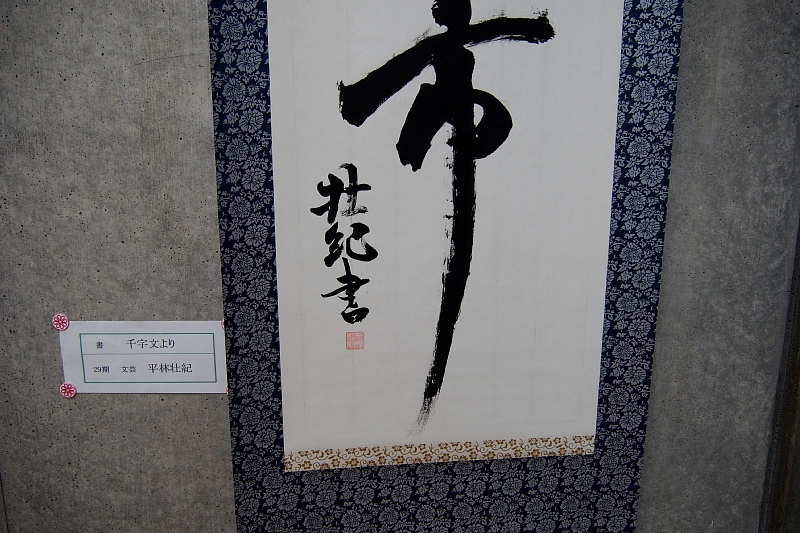 市
壮紀書
書 千字文より
29期 文芸 平林壮紀